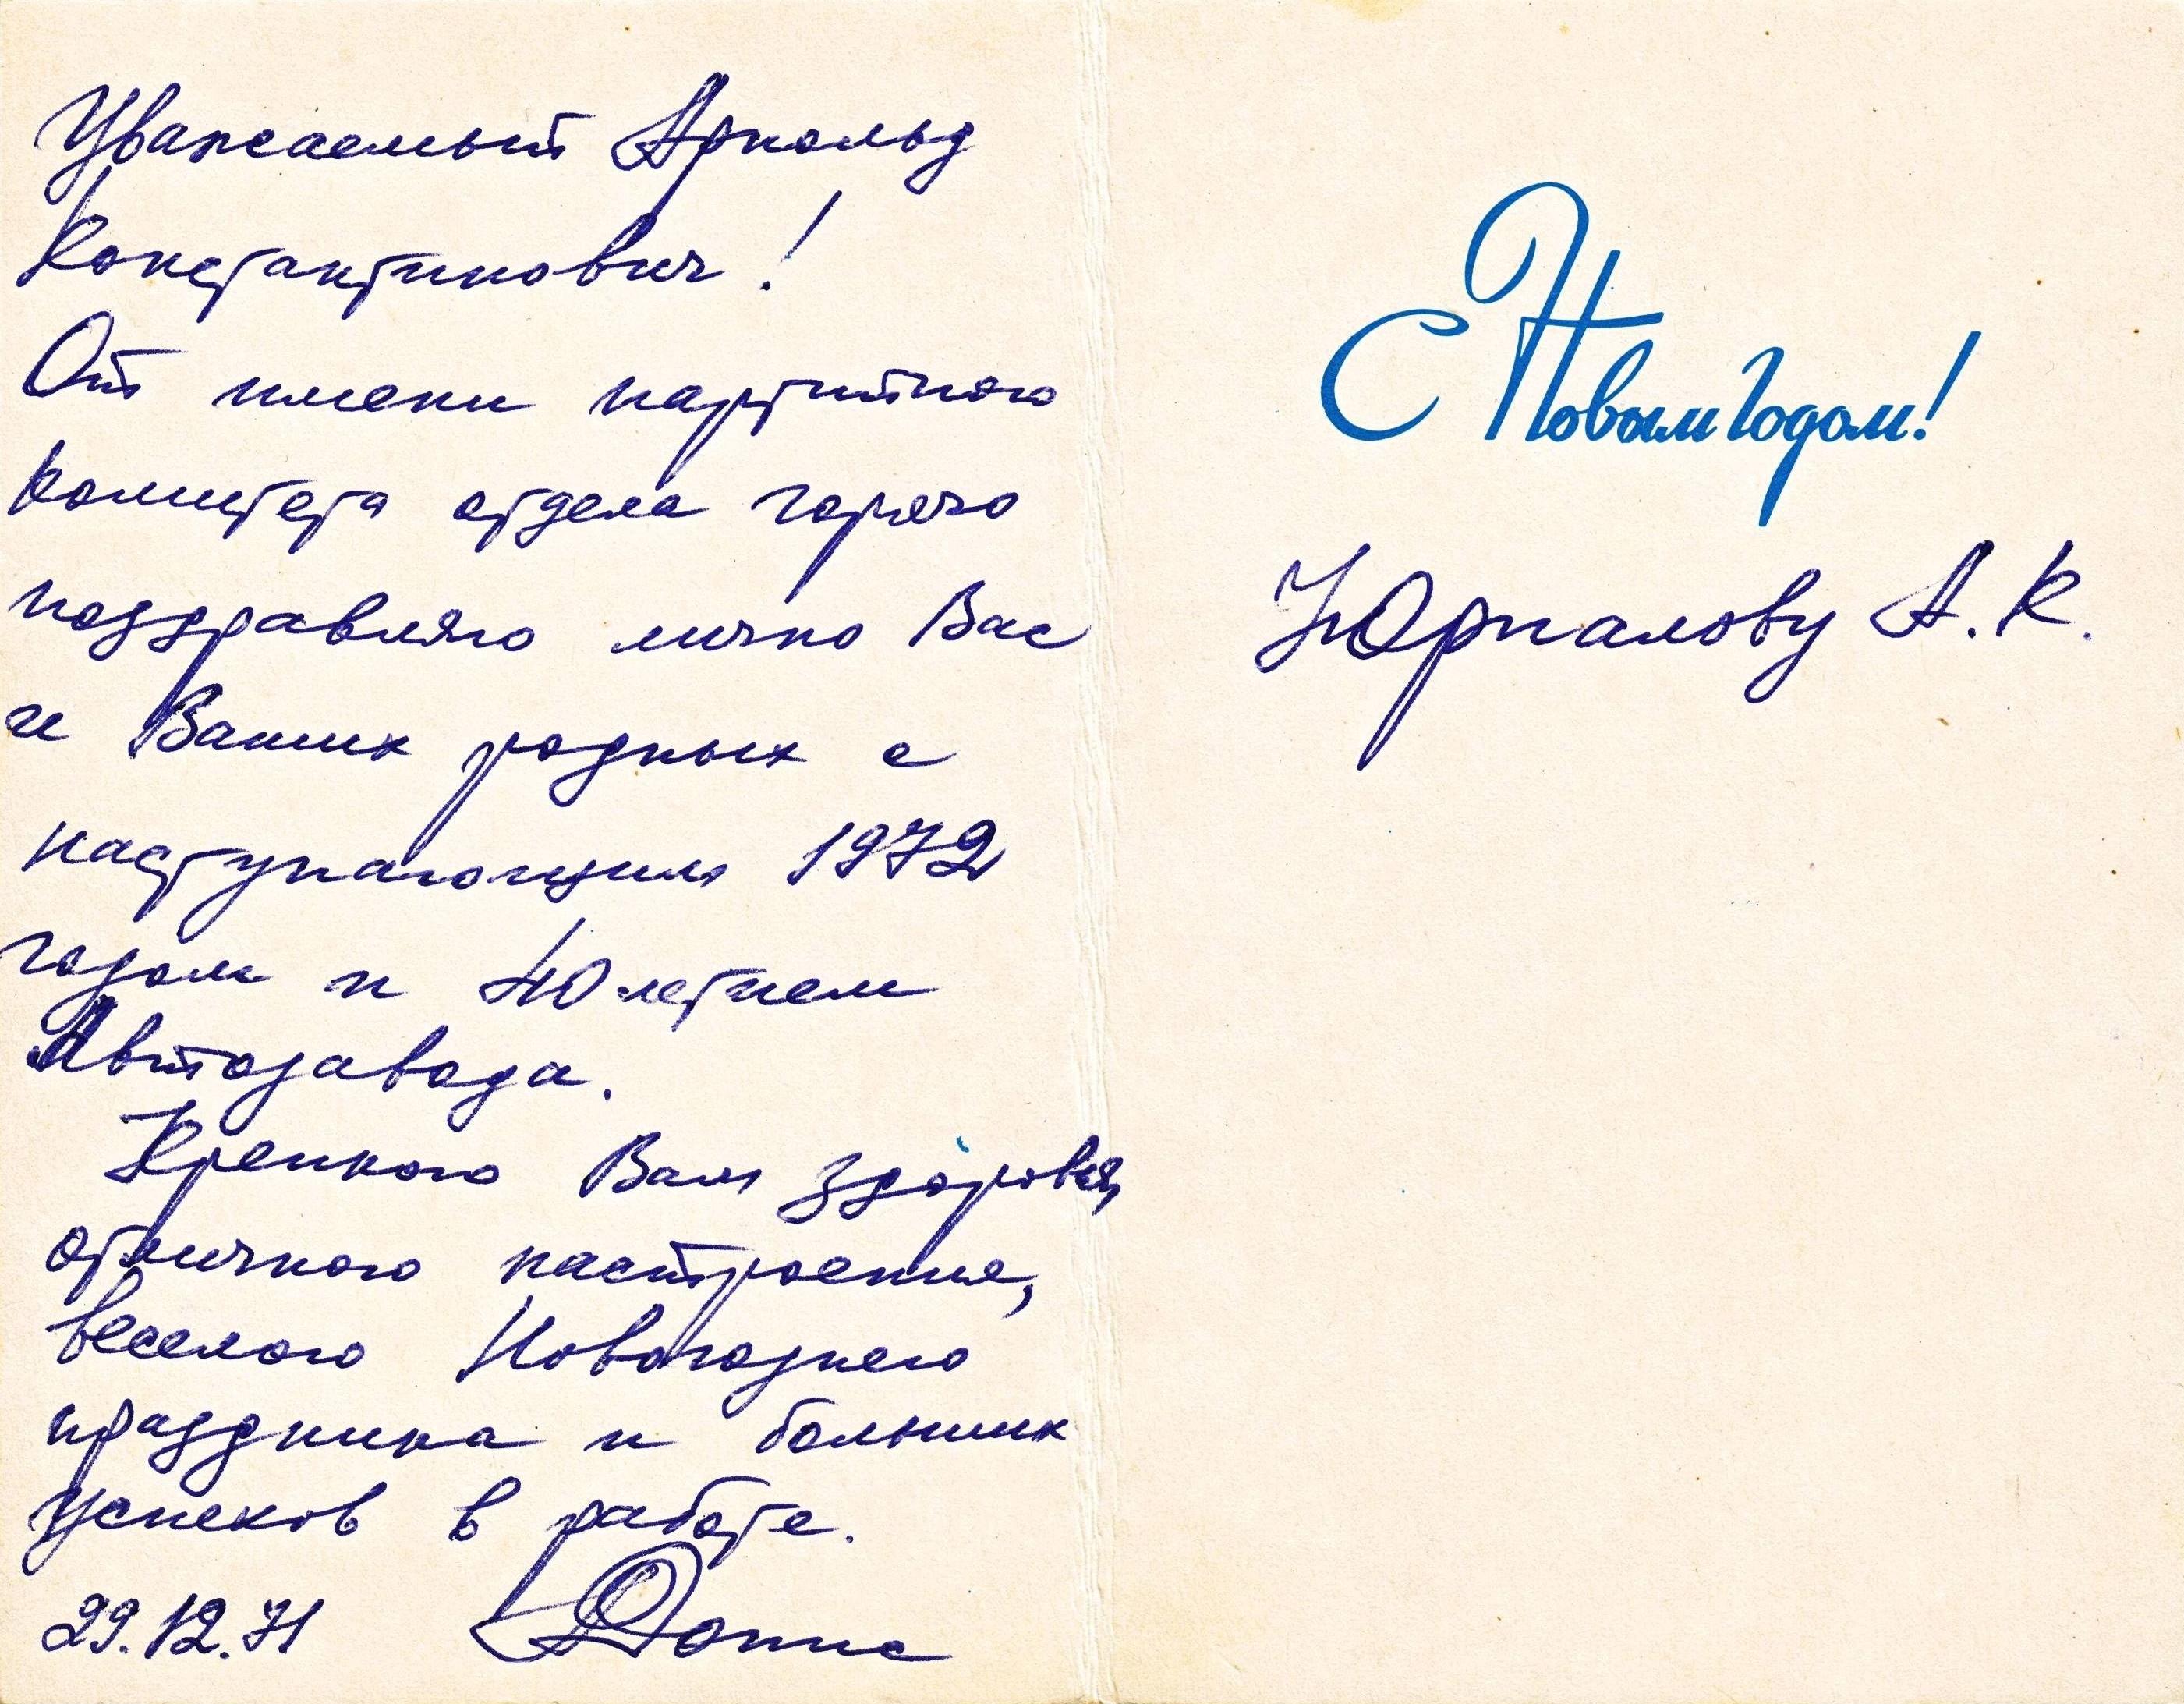 Уважаемый Арнольд
Константинович!
От имени партийного
комитета отдела горячо
поздравляю лично Вас
и Ваших родных с
наступающим 1972
годом и 40-летием
Автозавода.
Крепкого Вам здоровья,
отличного настроения,
веселого Новогоднего
праздника и больших
успехов в работе.
29.12.71
С Новым Годом!
Юрпалову А.К.